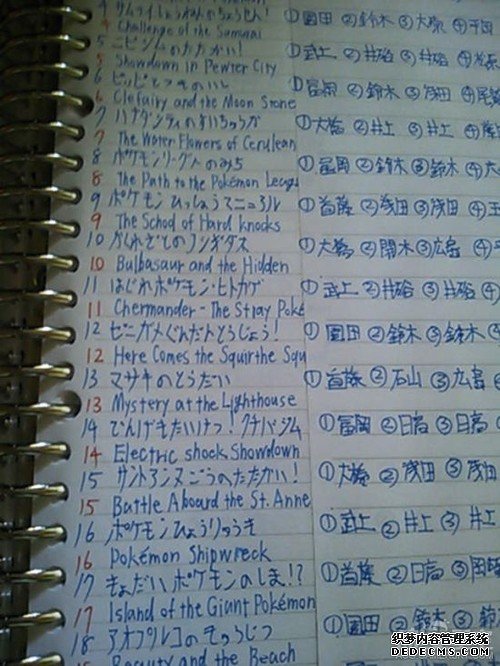 4 サムライしょうねんのちょうせん! ①園田 ②鈴木 ③大塚 ④
4 Challenge of the Samurai
5 ニビジムのたたかい! ①武上 ②井硲 ③井硲 ④
5 Showdown in Pewter City
6 ピッピとつきのいし ①冨岡 ②鈴木 ③浅田 ④
6 Clefairy and the Moon Stone
7 ハナダシティのすいちゅうか ①大橋 ②井上 ③井上 ④
7 The Water Flowers of Cerulean
8 ポケモンリーグへのみち ①冨岡 ②鈴木 ③鈴木 ④大
8 The Path to the Pokémon League
9 ポケモンひっしょうマニュアル ①首藤 ②浅田 ③浅田 ④
9 The School of Hard knocks
10 かくれざとのフシギダネ ①大橋 ②関木 ③広島 ④
10 Bulbasaur and the Hidden
11 はぐれポケモン・ヒトカゲ ①武上 ②井硲 ③井硲 ④
11 Chermander - The Stray Poké
12 ゼニガメぐんだんとうじょう! ①園田 ②鈴木 ③鈴木 ④
12 Here Comes the Squirthe Squ
13 マサキのとうだい ①首藤 ②石山 ③広島 ④
13 Mystery at the Lighthouse
14 でんげきたいけつ!クチバジム ①冨岡 ②日高 ③日高
14 Electric shock Showdown
15 サントアンヌごうのたたかい! ①大橋 ②浅田 ③浅田
15 Battle Aboard the St. Anne
16 ポケモンひょうりゅうき ①武上 ②井上 ③井上
16 Pokémon Shipwreck
17 きょだいポケモンのしま!? ①首藤 ②日高 ③
17 Island of the Giant Pokémon
18 アオプルコのきゅうじつ ①園田 ②鈴木 ③鈴
Beauty and the Beach
织梦内容管理系统
DEDECMS.COM